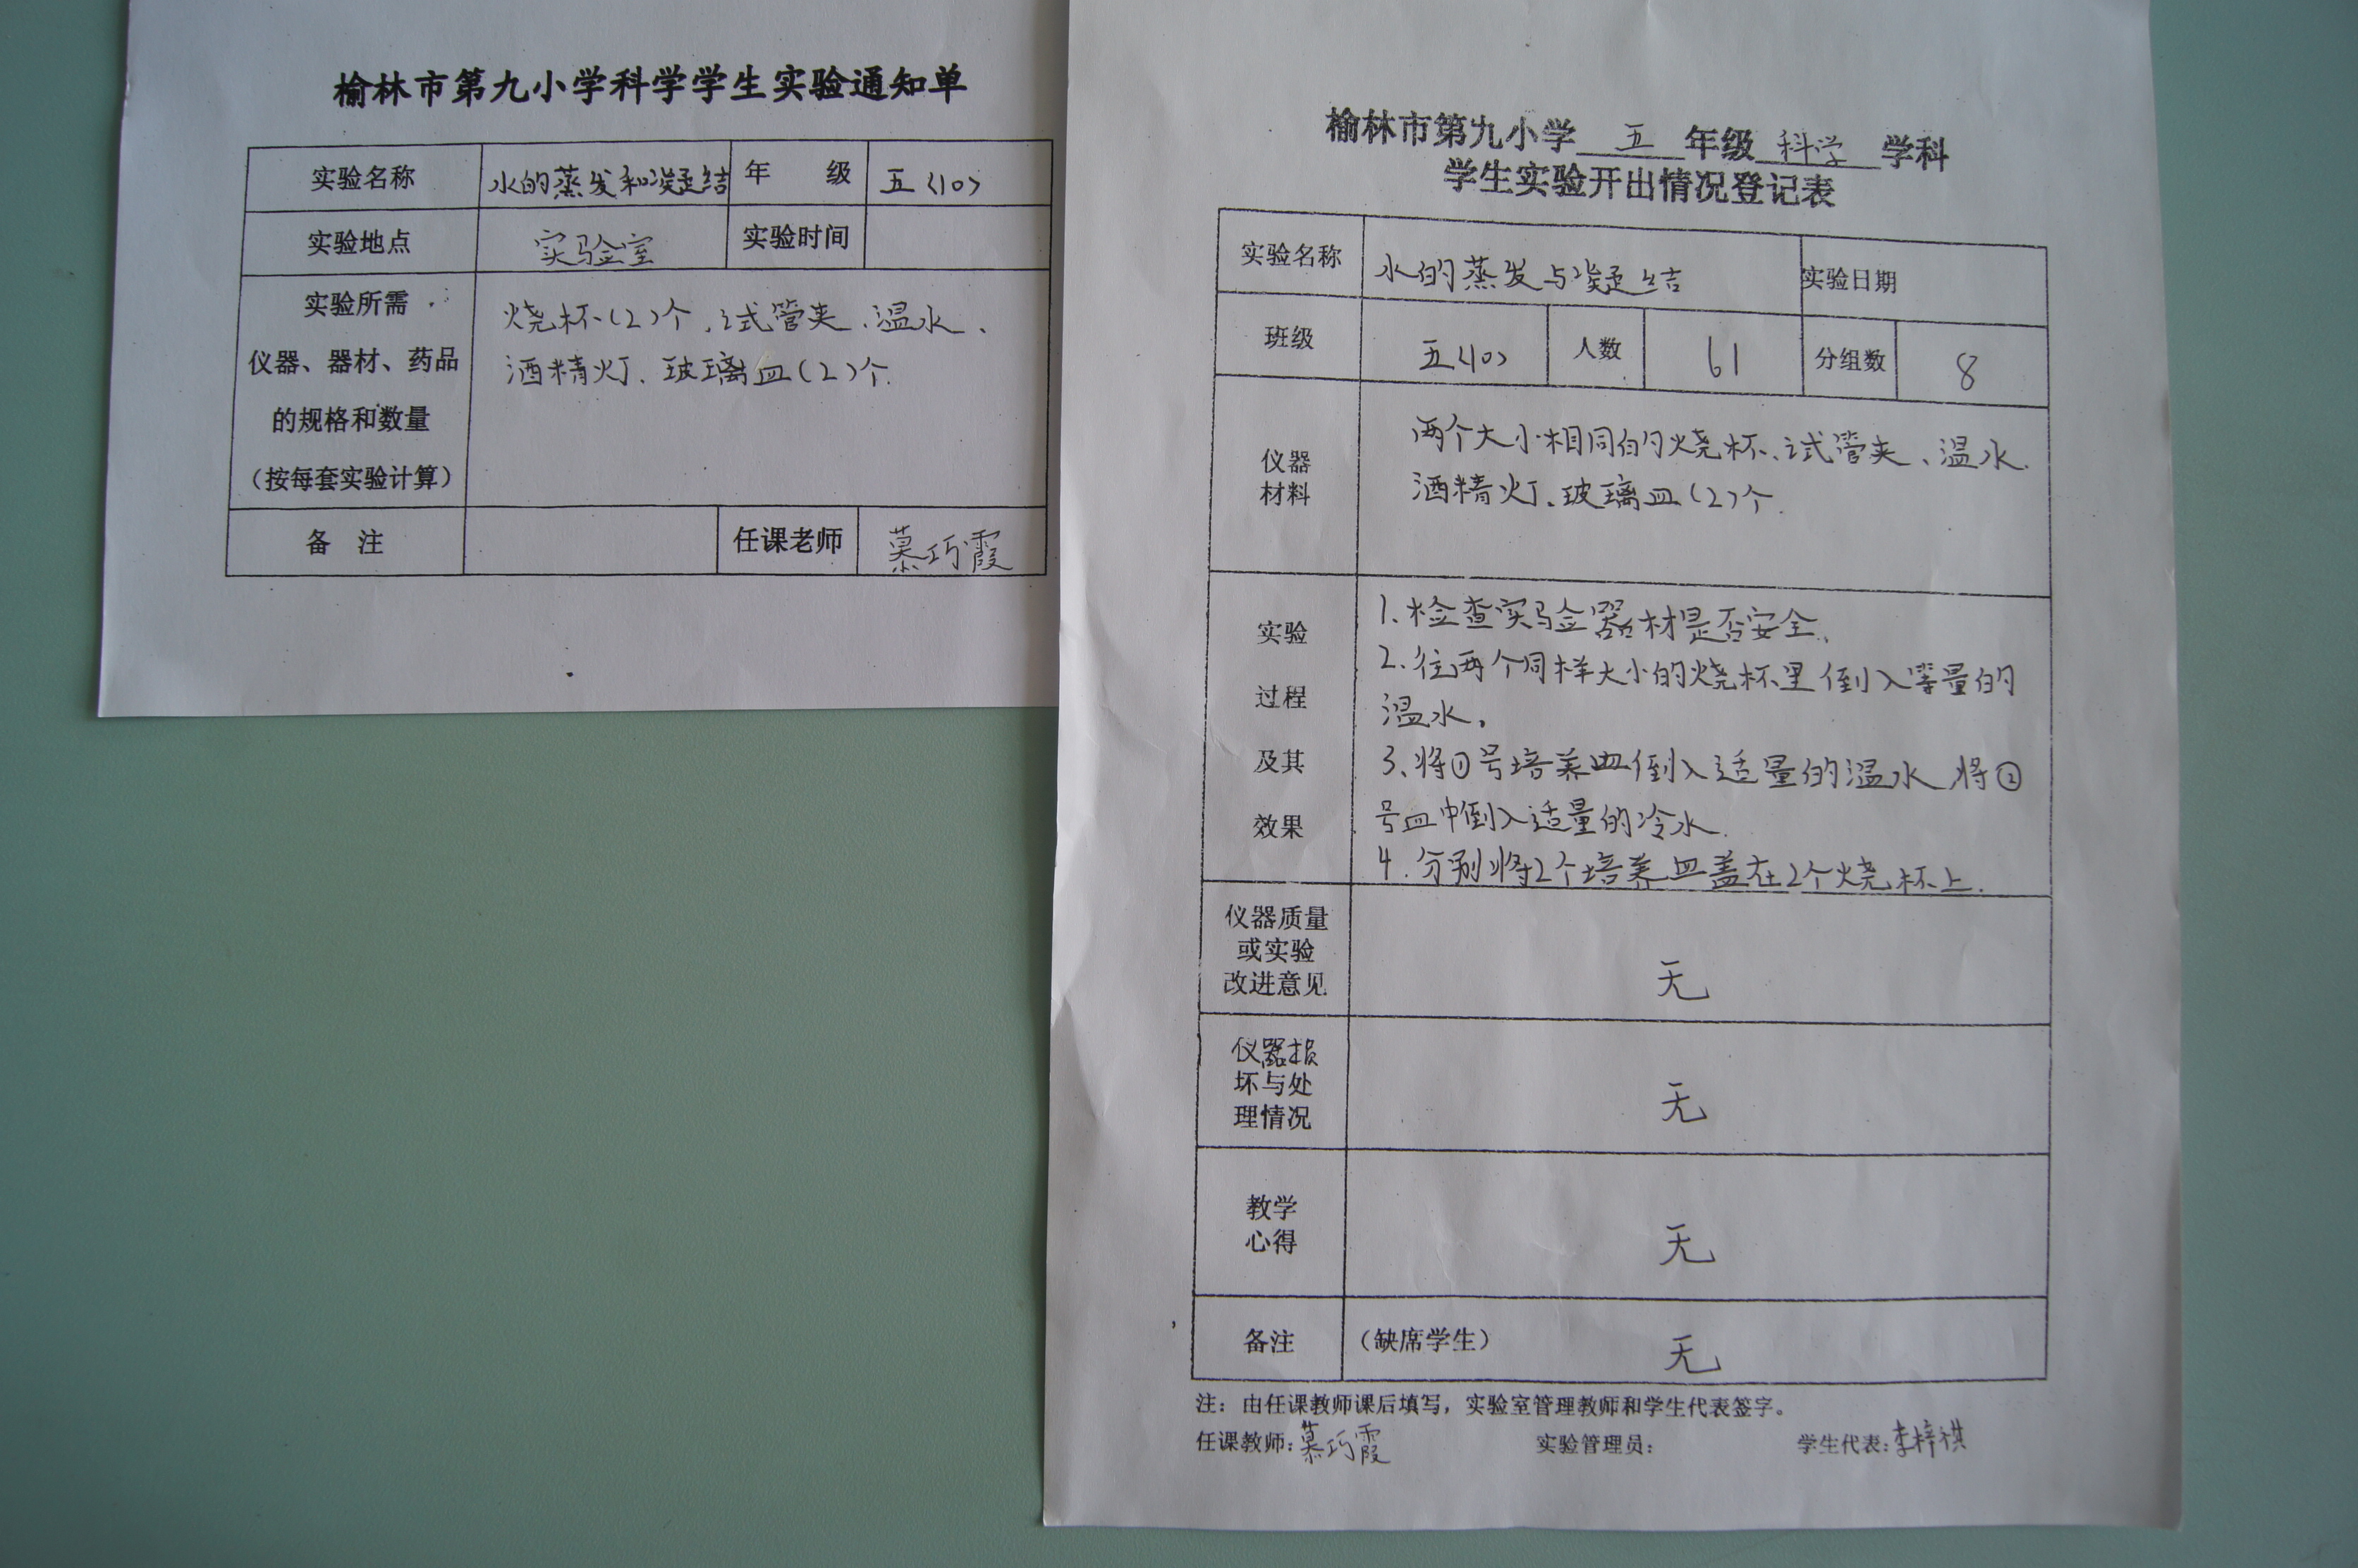 榆林市第九小学科学学生实验通知单
实验名称 水的蒸发和凝结 年 级 五<10>
实验地点 实验室 实验时间
实验所需
仪器、器材、药品
的规格和数量
（按每套实验计算）
烧杯(2)个、试管夹、温水、
酒精灯、玻璃皿(2)个.
备 注 任课老师 慕巧霞
榆林市第九小学 五 年级 科学 学科
学生实验开出情况登记表
实验名称 水的蒸发与凝结 实验日期
班级 五<10> 人数 61 分组数 8
仪器
材料
两个大小相同的烧杯、试管夹、温水.
酒精灯、玻璃皿(2)个.
实验
过程
及其
效果
1.检查实验器材是否安全、
2.往两个同样大小的烧杯里倒入等量的
温水。
3、将①号培养皿倒入适量的温水,将②
号皿中倒入适量的冷水.
4.分别将2个培养皿盖在2个烧杯上.
仪器质量
或实验
改进意见
无
仪器损
坏与处
理情况
无
教学
心得
无
备注 （缺席学生） 无
注：由任课教师课后填写，实验室管理教师和学生代表签字。
任课教师:慕巧霞 实验管理员: 学生代表:李梓祺